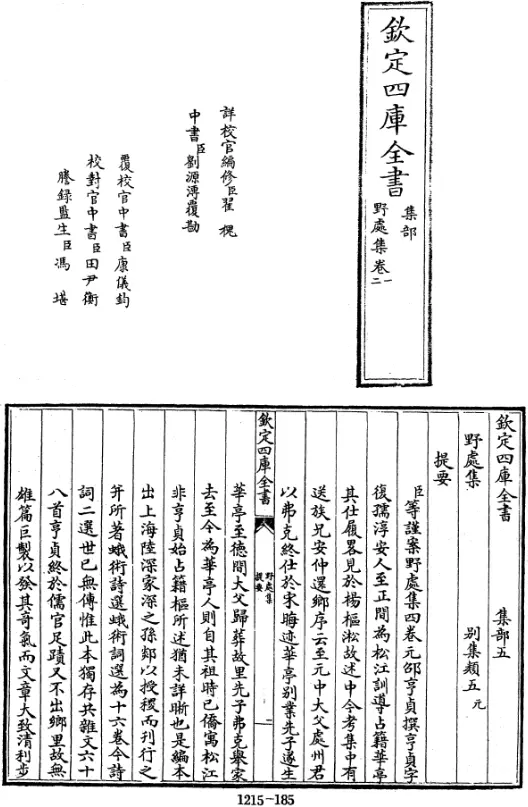 欽定四庫全書
集部
野處集卷一
二
詳校官編修臣翟槐
中書臣劉源溥覆勘
覆校官中書臣康儀鈞
校對官中書臣田尹衡
謄録監生臣馮堪
欽定四庫全書 集部五
野處集 别集類五元
提要
臣等謹案野處集四卷元邵亨貞撰亨貞字
復孺淳安人至正間為松江訓導占籍華亭
其仕履畧見於楊樞淞故述中今考集中有
送族兄安仲還鄉序云至元中大父處州君
以弗克終仕於宋晦迹華亭别業先子遂生
欽定四庫全書
野處集
提要
一
華亭至德間大父歸葬故里先子弗克舉家
去至今為華亭人則自其祖時已僑寓松江
非亨貞始占籍樞所述猶未詳晰也是編本
出上海陸深家深之孫郯以授稷而刋行之
并所著蛾術詩選蛾術詞選為十六卷今詩
詞二選世已無傳惟此本獨存共雜文六十
八首亨貞終於儒官足蹟又不出鄉里故無
雄篇巨製以發其奇氣而文章大致清利步
1215-185